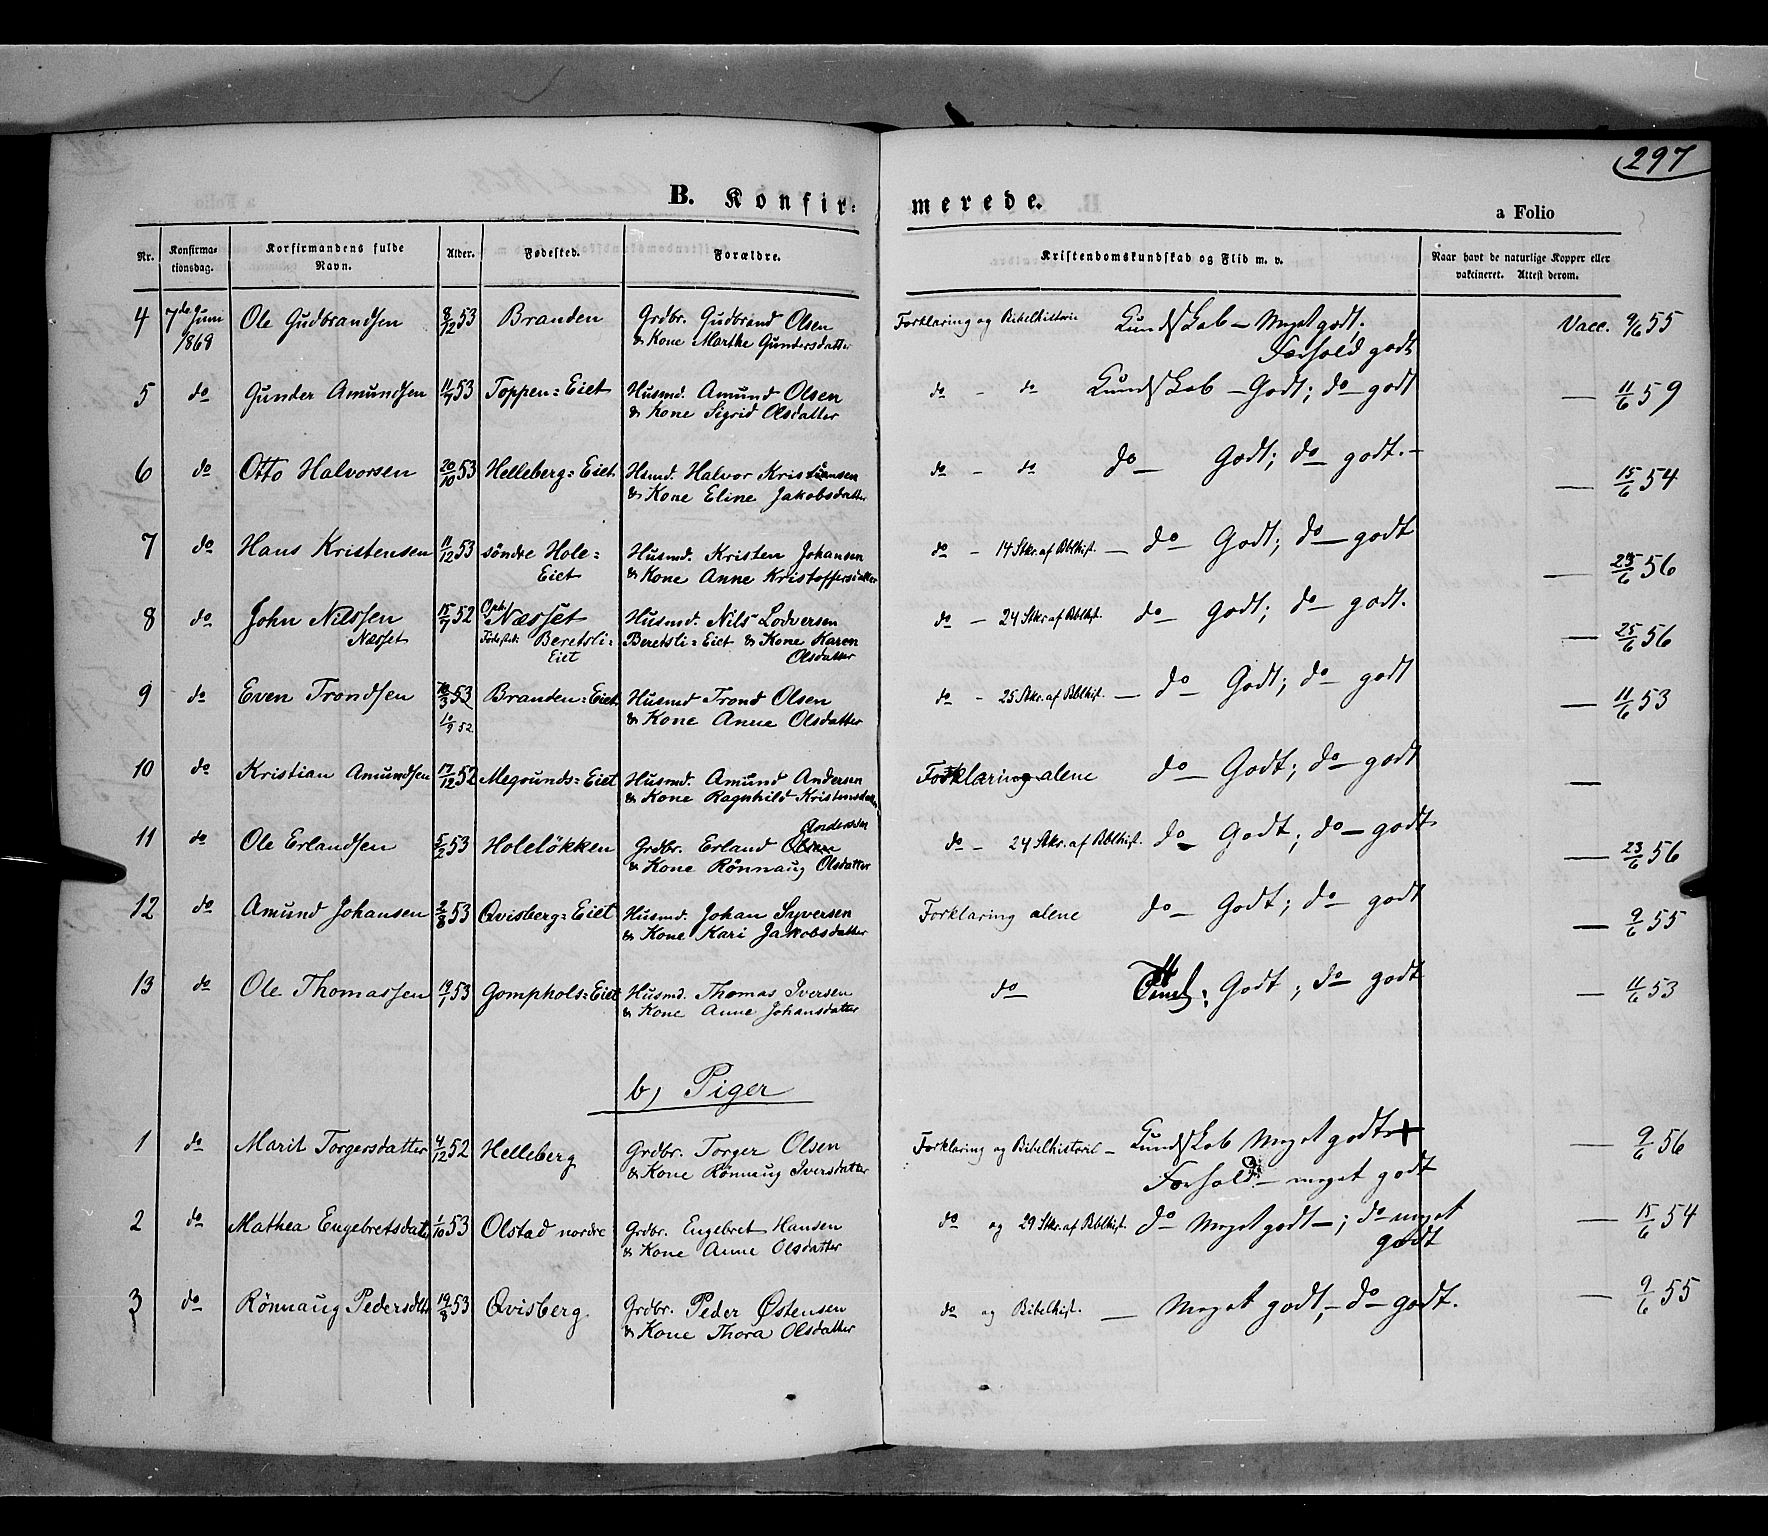 297
B. Konfir:merede.
a Folio
Nr. Konfirma-tionsdag. Korfirmandens fulde Navn. Alder. Fødested. Forældre. Kristendomskundskab og Flid m. v. Naar havt de naturlige Kopper eller vakcineret. Attest derom.
4 7de Juni Ole Gudbrandsen 8/12 53 Branden Grdbr. Gudbrand Olsen Forklaring og Bibelhistorie Kundskab – Meget godt. Vacc. 9/6 55
1868 & Kone Marthe Gundersdatter Forhold godt
5 do Gunder Amundsen 11/7 53 Toppen=Eiet Husmd. Amund Olsen do - do Kundskab – Godt; do godt — 11/6 59
& Kone Sigrid Olsdatter
6 do Otto Halvorsen 20/10 53 Helleberg=Eiet Hsmd. Halvor Kristiansen do - do do – Godt; do godt. — 15/6 54
& Kone Eline Jakobsdatter
7 do Hans Kristensen 11/12 53 søndre Hole= Husmd. Kristen Johansen do - 14 Stkr. af Bblhist. — do Godt; do – godt — 23/6 56
Eiet & Kone Anne Kristoffersdatter
8 do John Nilssen 15/7 52 Oph. Næsset Husmd. Nils Lodversen do - 24 Stkr. af Bblhist. do – Godt; do – godt. — 25/6 56
Næsset Fødested: Beretsli= Beretsli=Eiet & Kone Karen
Eiet Olsdatter
9 do Even Trondsen 16/3 53 Branden=Eiet Husmd Trond Olsen do - 25 Stkr. af Bblhist. — do – Godt; do godt — 11/6 53
10/9 52 & Kone Anne Olsdatter
10 do Kristian Amundsen 17/12 52 Megrunds=Eiet Husmd. Amund Andersen Forklaring alene do – Godt; do godt —
& Kone Ragnhild Kristensdatter
Andersen
11 do Ole Erlandsen 5/2 53 Holeløkken Grdbr. Erland Olsen do - 24 Stkr. af Bblhist. do – Godt; do – godt — 23/6 56
& Kone Rönnaug Olsdatter
12 do Amund Johansen 2/8 53 Qvisberg=Eiet Husmd. Johan Syversen Forklaring alene do – Godt; do – godt — 9/6 55
& Kone Kari Jakobsdatter
13 do Ole Thomassen 19/1 53 Gomphols=Eiet Husmd. Thomas Iversen do Godt; do godt — 11/6 53
& Kone Anne Johansdatter
b, Piger
1 do Marit Torgersdatter 4/12 52 Helleberg Grdbr. Torger Olsen Forklaring og Bibelhistorie – Kundskab Meget godt + — 9/6 56
& Kone Rönnaug Iversdatter Forhold – meget godt
2 do Mathea Engebretsdatter 1/10 53 Olstad nordre Grdbr. Engebret Hansen do og 29 Stkr. af Bblhist. do Meget godt –; do meget — 15/6 54
& Kone Anne Olsdatter godt
3 do Rönnaug Pedersdtr 19/8 53 Qvisberg. Grdbr. Peder Østensen do og Bibelhist. — Meget godt, – do – godt. — 9/6 55
& Kone Thora Olsdatter